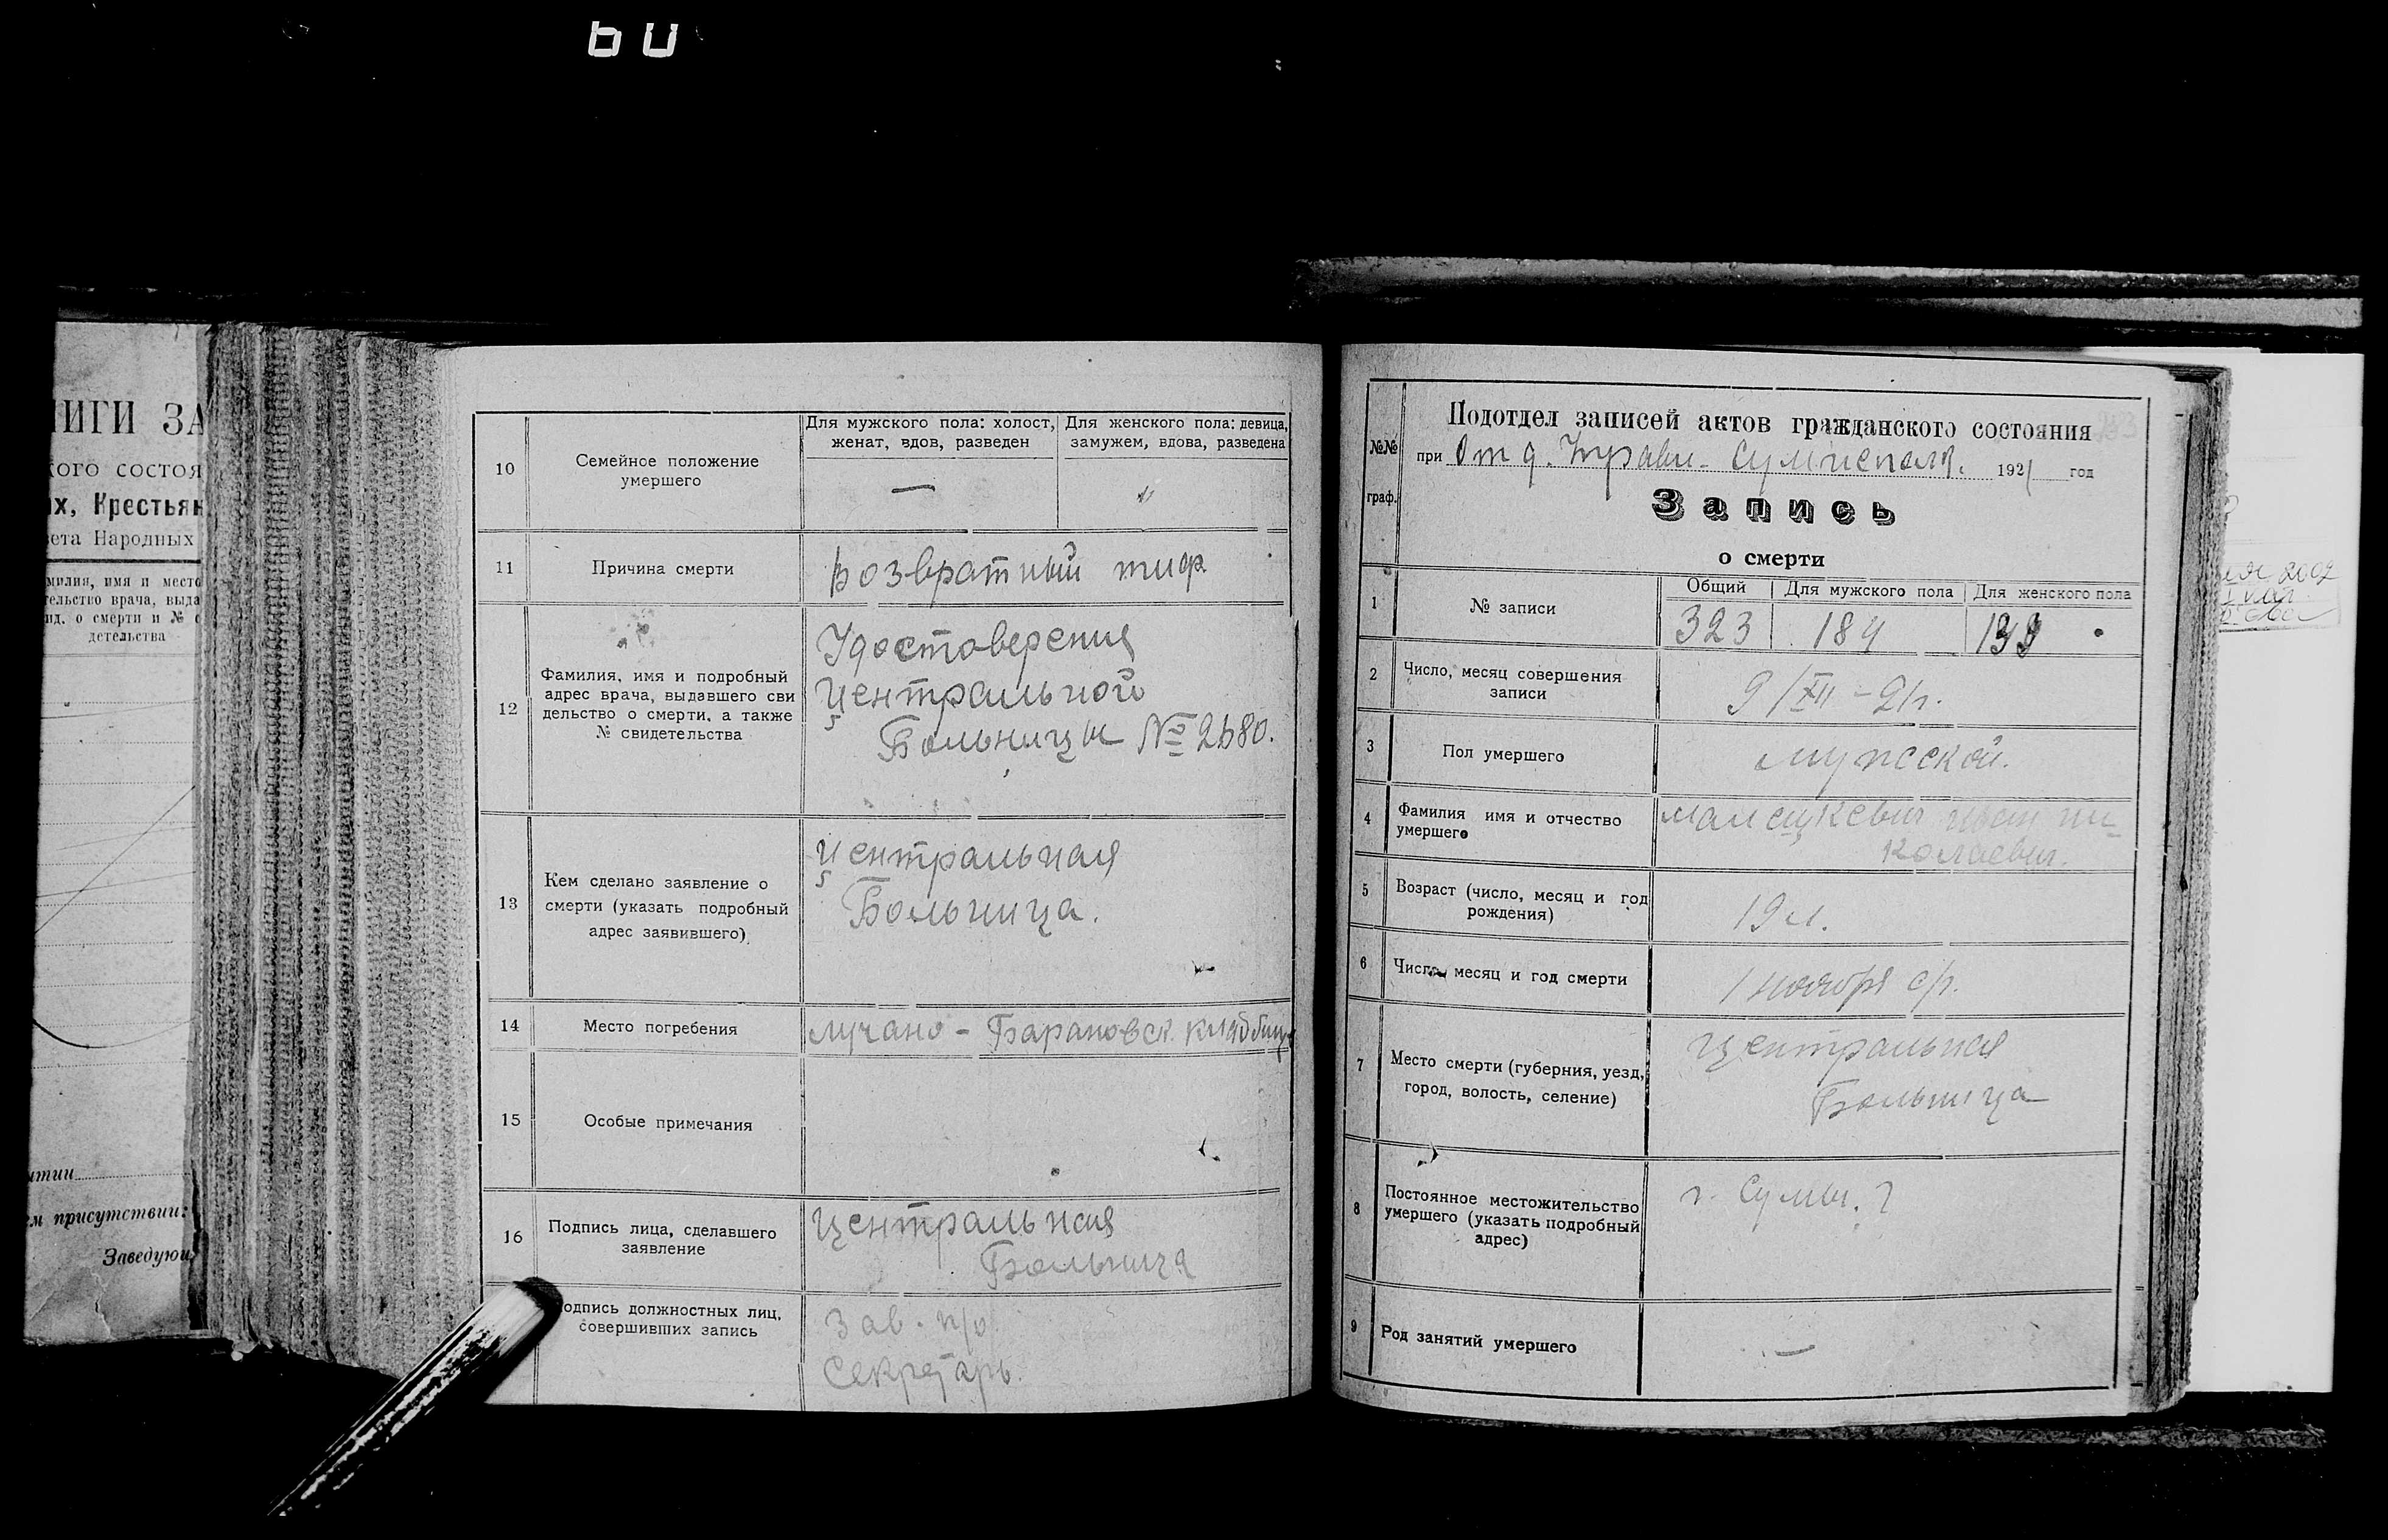 60
НИГИ ЗА
кого состоя
их, Крестьян
вета Народных
милия, имя и место
тельство врача, выда
ид. о смерти и № с
детельства
ытии
ем присутствии:
Заведую
10
Семейное положение
умершего
Для мужского пола: холост,
женат, вдов, разведен
—
Для женского пола: девица,
замужем, вдова, разведена
11
Причина смерти
Возвратный тиф
12
Фамилия, имя и подробный
адрес врача, выдавшего сви
дельство о смерти, а также
№ свидетельства
Удостоверения
Центральной
Больницы №
13
Кем сделано заявление о
смерти (указать подробный
адрес заявившего)
Центральная
Больница.
14
Место погребения
Лучано - Барановск. кладбищ
15
Особые примечания
16
Подпись лица, сделавшего
заявление
Центральная
Больница
одпись должностных лиц,
совершивших запись
Зав. п/о
Секретарь.
№№
граф.
Подотдел записей актов гражданского состояния
при Отд. Управл. Сумисполк. 1921 год
Запись
о смерти
1
№ записи
Общий
323
Для мужского пола
184
Для женского пола
139
2
Число, месяц совершения
записи
9/XII - 21г.
3
Пол умершего
мужской.
4
Фамилия имя и отчество
умершего
Иван Ни-
колаевич.
5
Возраст (число, месяц и год
рождения)
19 л.
6
Число, месяц и год смерти
1 ноября с/г.
7
Место смерти (губерния, уезд,
город, волость, селение)
Центральная
Больница
8
Постоянное местожительство
умершего (указать подробный
адрес)
г. Сумы. ?
9
Род занятий умершего
—